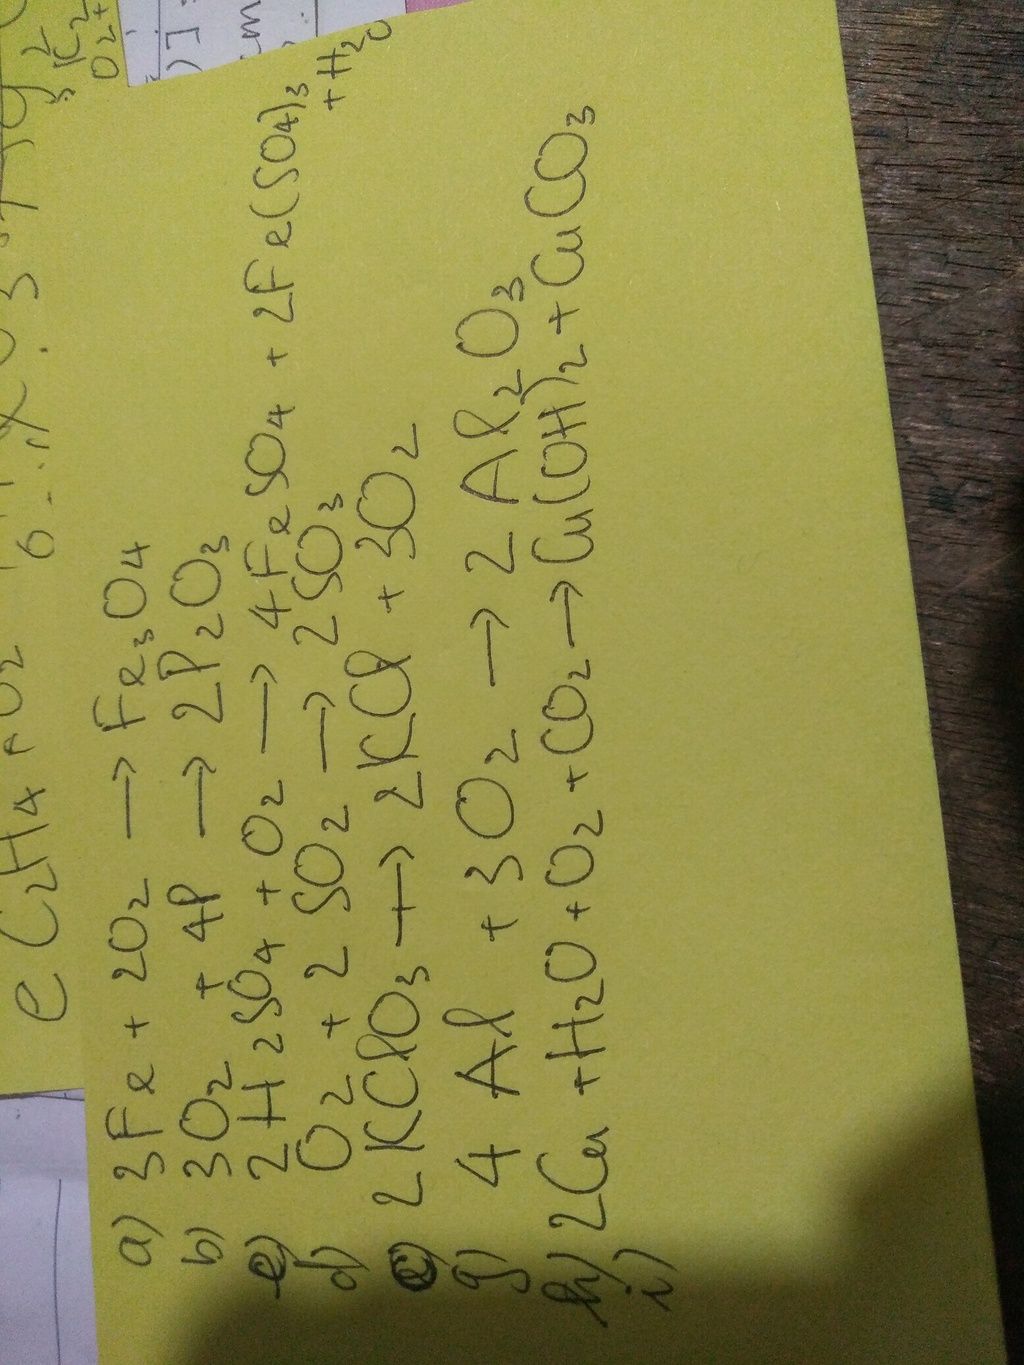 e C2H4 + O2
a) 3Fe + 2O2 → Fe3O4
b) 3O2 + 4P → 2P2O3
c) 2H2SO4 + O2 → 4FeSO4 + 2Fe(SO4)3 + H2O
d) O2 + 2SO2 → 2SO3
e) 2KClO3 → 2KCl + 3O2
g) 4Al + 3O2 → 2Al2O3
h) 2Cu + H2O + O2 + CO2 → Cu(OH)2 + CuCO3
i)